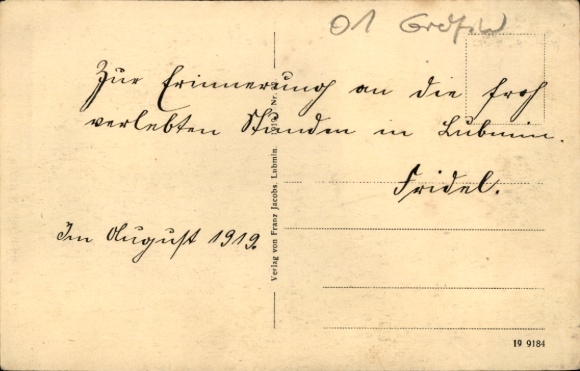 01 Grdfswld
Zur Erinnerung an die froh
verlebten Stunden in Lubmin.
Fridel.
Im August 1919.
Verlag von Franz Jacobs, Lubmin. Nr.
19 9184